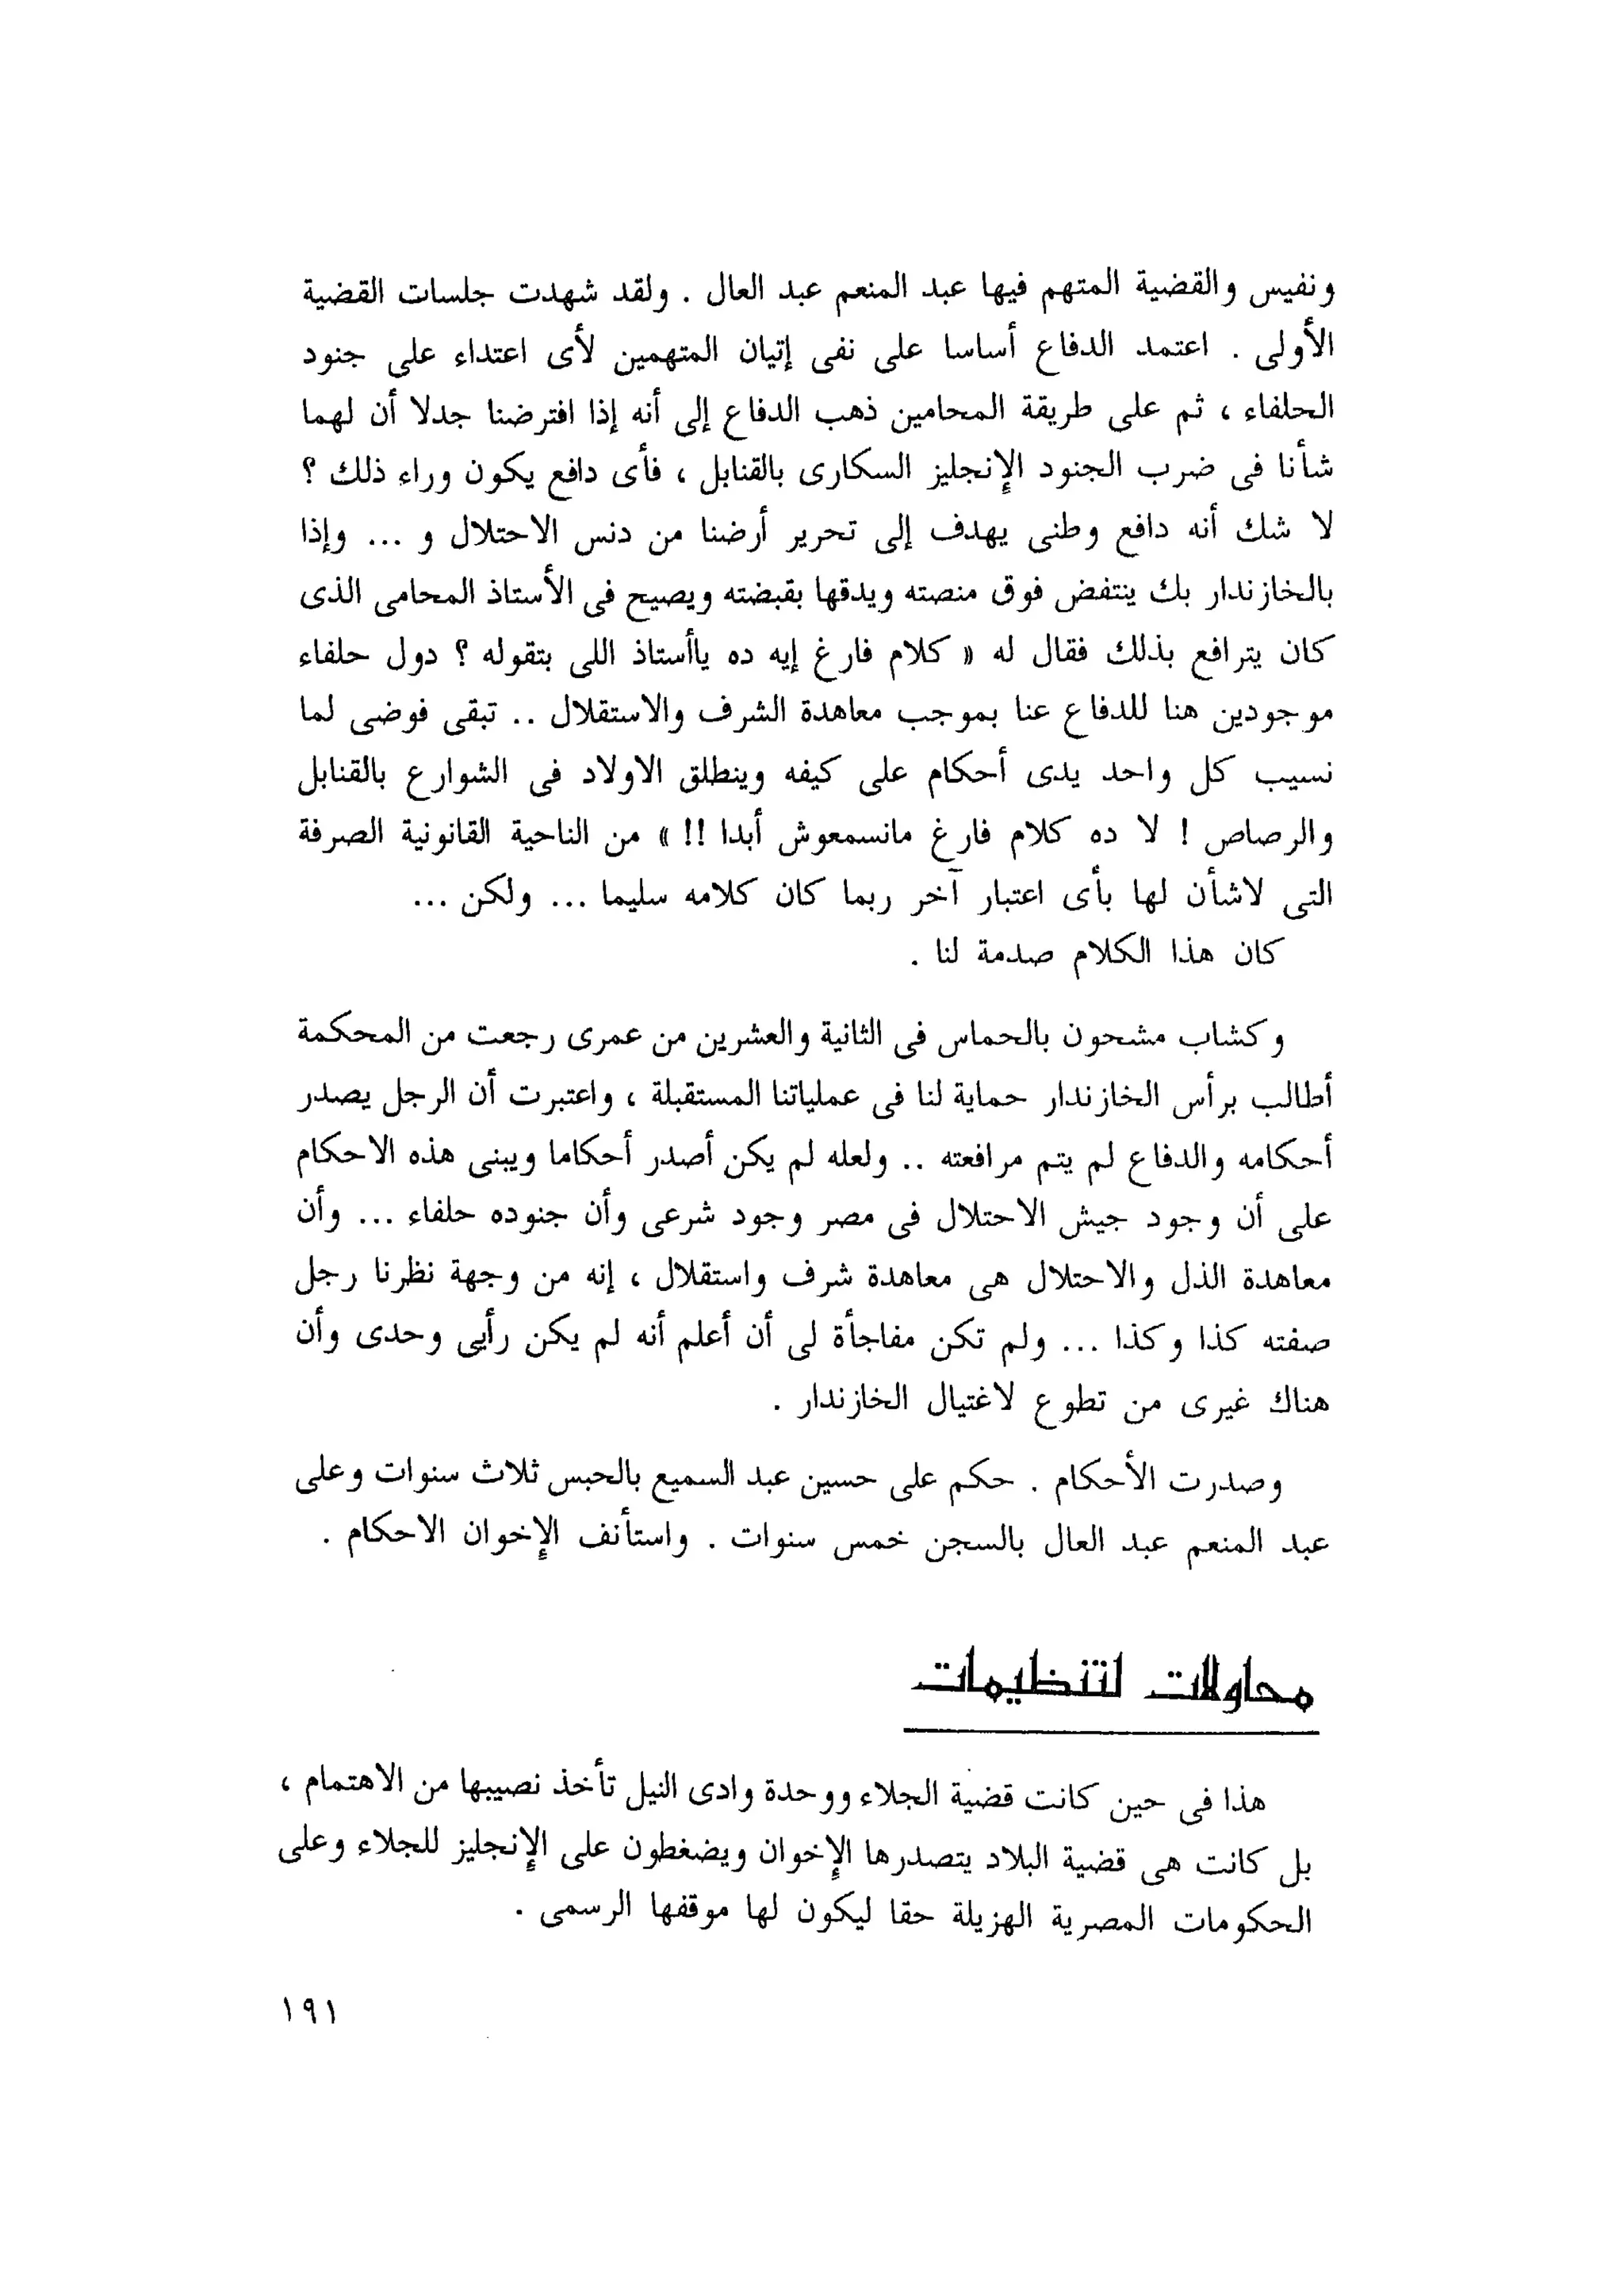 ونفيس والقضية المتهم فيها عبد المنعم عبد العال . ولقد شهدت جلسات القضية
الأولى . اعتمد الدفاع أساسا على نفى إتيان المتهمين لأى اعتداء على جنود
الحلفاء ، ثم على طريقة المحامين ذهب الدفاع إلى أنه إذا افترضنا جدلا أن لهما
شأنا فى ضرب الجنود الإنجليز السكارى بالقنابل ، فأى دافع يكون وراء ذلك ؟
لا شك أنه دافع وطنى يهدف إلى تحرير أرضنا من دنس الاحتلال و ... وإذا
بالخازندار بك ينتفض فوق منصته ويدقها بقبضته ويصيح فى الأستاذ المحامى الذى
كان يترافع بذلك فقال له « كلام فارغ إيه ده ياأستاذ اللى بتقوله ؟ دول حلفاء
موجودين هنا للدفاع عنا بموجب معاهدة الشرف والاستقلال .. تبقى فوضى لما
نسيب كل واحد يدى أحكام على كيفه وينطلق الاولاد فى الشوارع بالقنابل
والرصاص ! لا ده كلام فارغ مانسمعوش أبدا !! » من الناحية القانونية الصرفة
التى لاشأن لها بأى اعتبار آخر ربما كان كلامه سليما ... ولكن ...
كان هذا الكلام صدمة لنا .
وكشاب مشحون بالحماس فى الثانية والعشرين من عمرى رجعت من المحكمة
أطالب برأس الخازندار حماية لنا فى عملياتنا المستقبلة ، واعتبرت أن الرجل يصدر
أحكامه والدفاع لم يتم مرافعته .. ولعله لم يكن أصدر أحكاما ويبنى هذه الاحكام
على أن وجود جيش الاحتلال فى مصر وجود شرعى وأن جنوده حلفاء ... وأن
معاهدة الذل والاحتلال هى معاهدة شرف واستقلال ، إنه من وجهة نظرنا رجل
صفته كذا وكذا ... ولم تكن مفاجأة لى أن أعلم أنه لم يكن رأيى وحدى وأن
هناك غيرى من تطوع لاغتيال الخازندار .
وصدرت الأحكام . حكم على حسين عبد السميع بالحبس ثلاث سنوات وعلى
عبد المنعم عبد العال بالسجن خمس سنوات . واستأنف الإخوان الاحكام .
محاولات لتنظيمات
هذا فى حين كانت قضية الجلاء ووحدة وادى النيل تأخذ نصيبها من الاهتمام ،
بل كانت هى قضية البلاد يتصدرها الإخوان ويضغطون على الإنجليز للجلاء وعلى
الحكومات المصرية الهزيلة حقا ليكون لها موقفها الرسمى .
١٩١